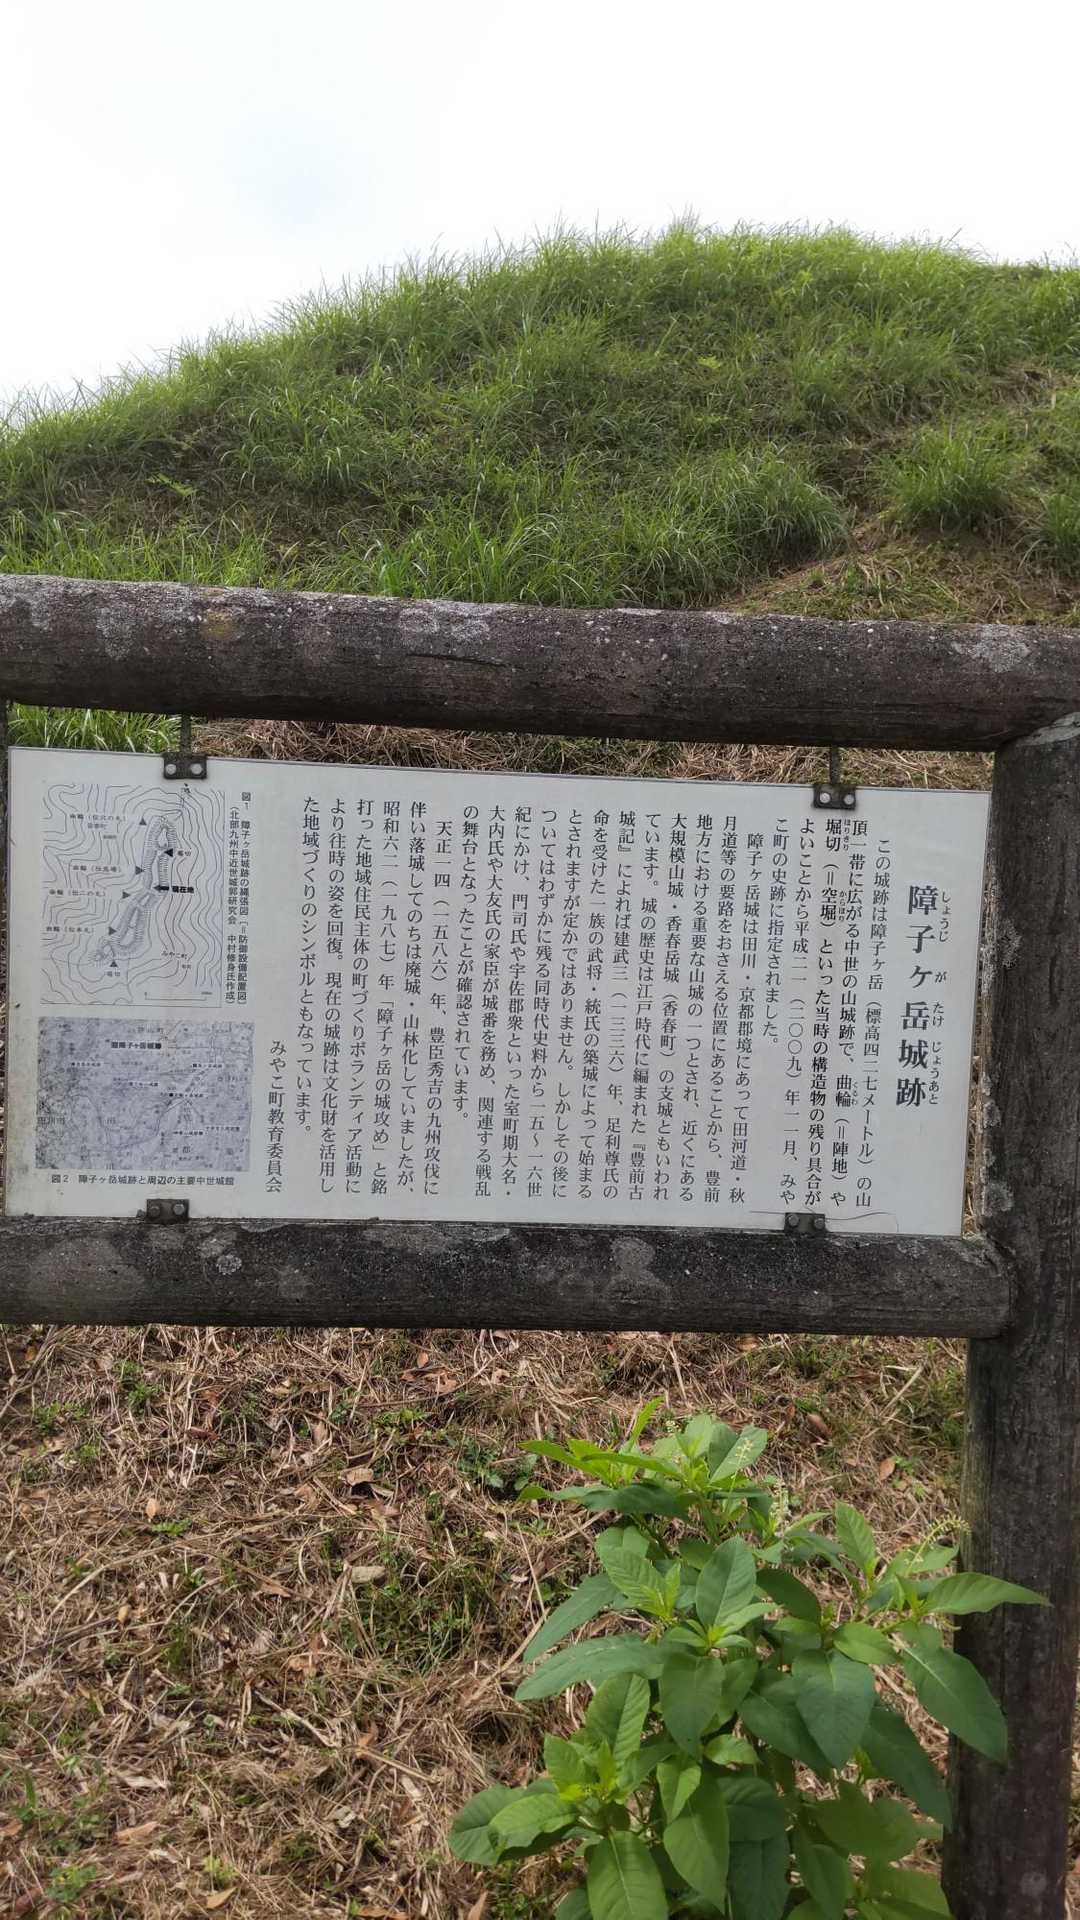 障子ヶ岳城跡
しょうじ が たけ じょうあと
この城跡は障子ヶ岳（標高四二七メートル）の山
頂一帯に広がる中世の山城跡で、曲輪（＝陣地）や
くるわ
堀切（＝空堀）といった当時の構造物の残り具合が
ほりきり からほり
よいことから平成二一（二〇〇九）年一一月、みや
こ町の史跡に指定されました。
障子ヶ岳城は田川・京都郡境にあって田河道・秋
月道等の要路をおさえる位置にあることから、豊前
地方における重要な山城の一つとされ、近くにある
大規模山城・香春岳城（香春町）の支城ともいわれ
ています。城の歴史は江戸時代に編まれた『豊前古
城記』によれば建武三（一三三六）年、足利尊氏の
命を受けた一族の武将・統氏の築城によって始まる
とされますが定かではありません。しかしその後に
ついてはわずかに残る同時代史料から一五～一六世
紀にかけ、門司氏や宇佐郡衆といった室町期大名・
大内氏や大友氏の家臣が城番を務め、関連する戦乱
の舞台となったことが確認されています。
天正一四（一五八六）年、豊臣秀吉の九州攻伐に
伴い落城してのちは廃城・山林化していましたが、
昭和六二（一九八七）年「障子ヶ岳の城攻め」と銘
打った地域住民主体の町づくりボランティア活動に
より往時の姿を回復。現在の城跡は文化財を活用し
た地域づくりのシンボルともなっています。
みやこ町教育委員会
図1 障子ヶ岳城跡の縄張図（＝防御設備配置図）
（北部九州中近世城郭研究会 中村修身氏作成）
堀切
現在地
みやこ町
堀切
障子ヶ岳城
図2 障子ヶ岳城跡と周辺の主要中世城館